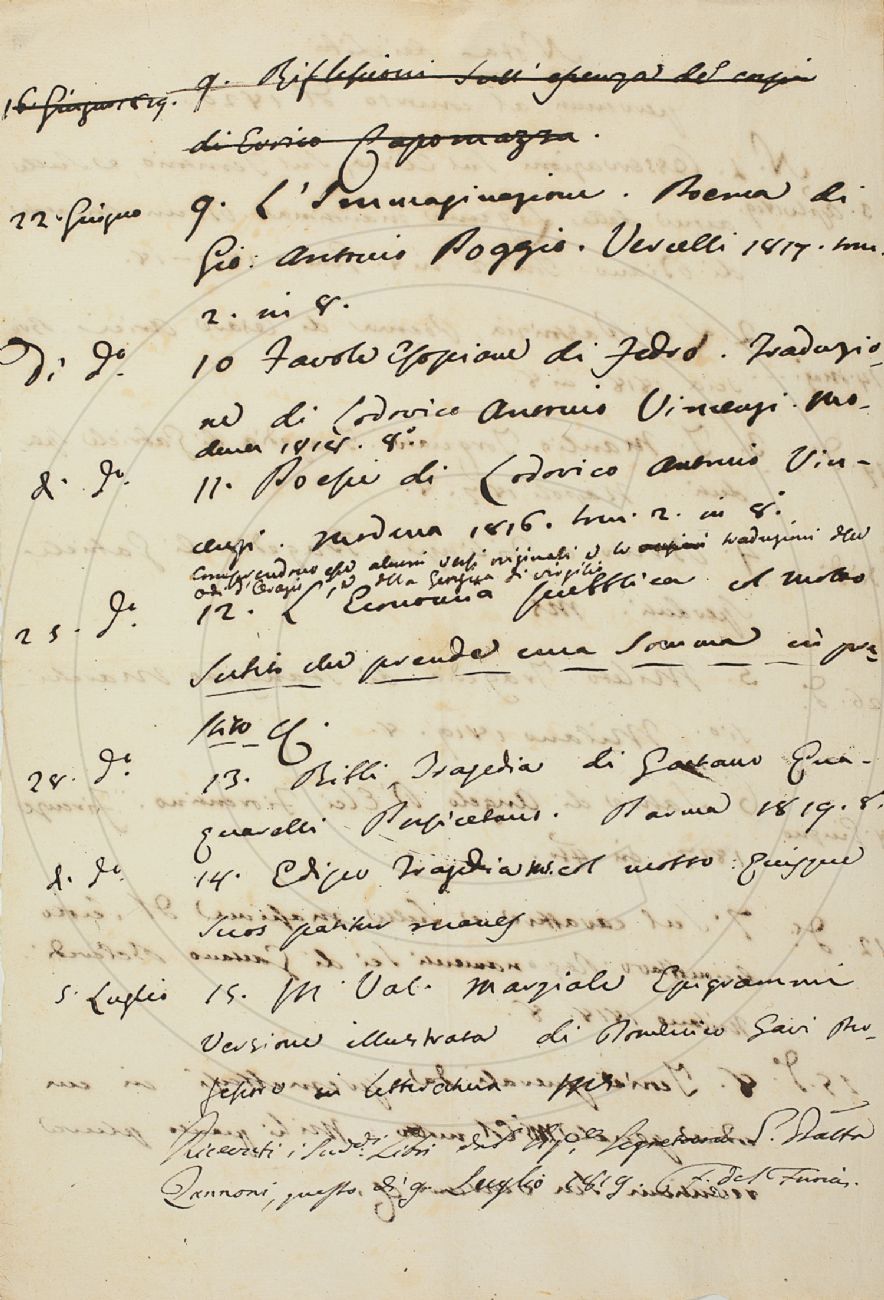 16. Giugno 1819. 9. Riflessioni sull' essenza de' corpi
di Enrico Capomazza.
22. Giugno 9. L'Immaginazione. Poema di
Gio: Antonio Roggio. Vercelli 1817. tom.
2. in 8.
Di do. 10 Favole Esopiane di Fedro. Traduzio-
ne di Lodovico Antonio Vincenzi. Mo-
dena 1818. 8°.
d. do. 11. Poesie di Lodovico Antonio Vin-
cenzi. Modena 1816. tom. 2. in 8°.
Comprendono esse alcuni versi originali e le traduzioni delle
Odi d'Orazio e della Georgica di Virgilio
25. do. 12. L'Economia pubblica col motto
Subito che prende una somma in pre-
stito &.
28. do. 13. Bibli Tragedia di Gaetano
Parma 1819. 8.
d. do. 14. Edipo Tragedia ms. col motto: Quisque
suos patitur manes
5. Luglio 15. M. Val. Marziale Epigrammi
Versione illustrata di Domenico Gavi Pro-
fessore in letteratura Ms
Ricevuti i sudd.i Libri dal Sig.re Segretario P. Batta
Zannoni, questo dì 9. Luglio 1819. F. del Furia.